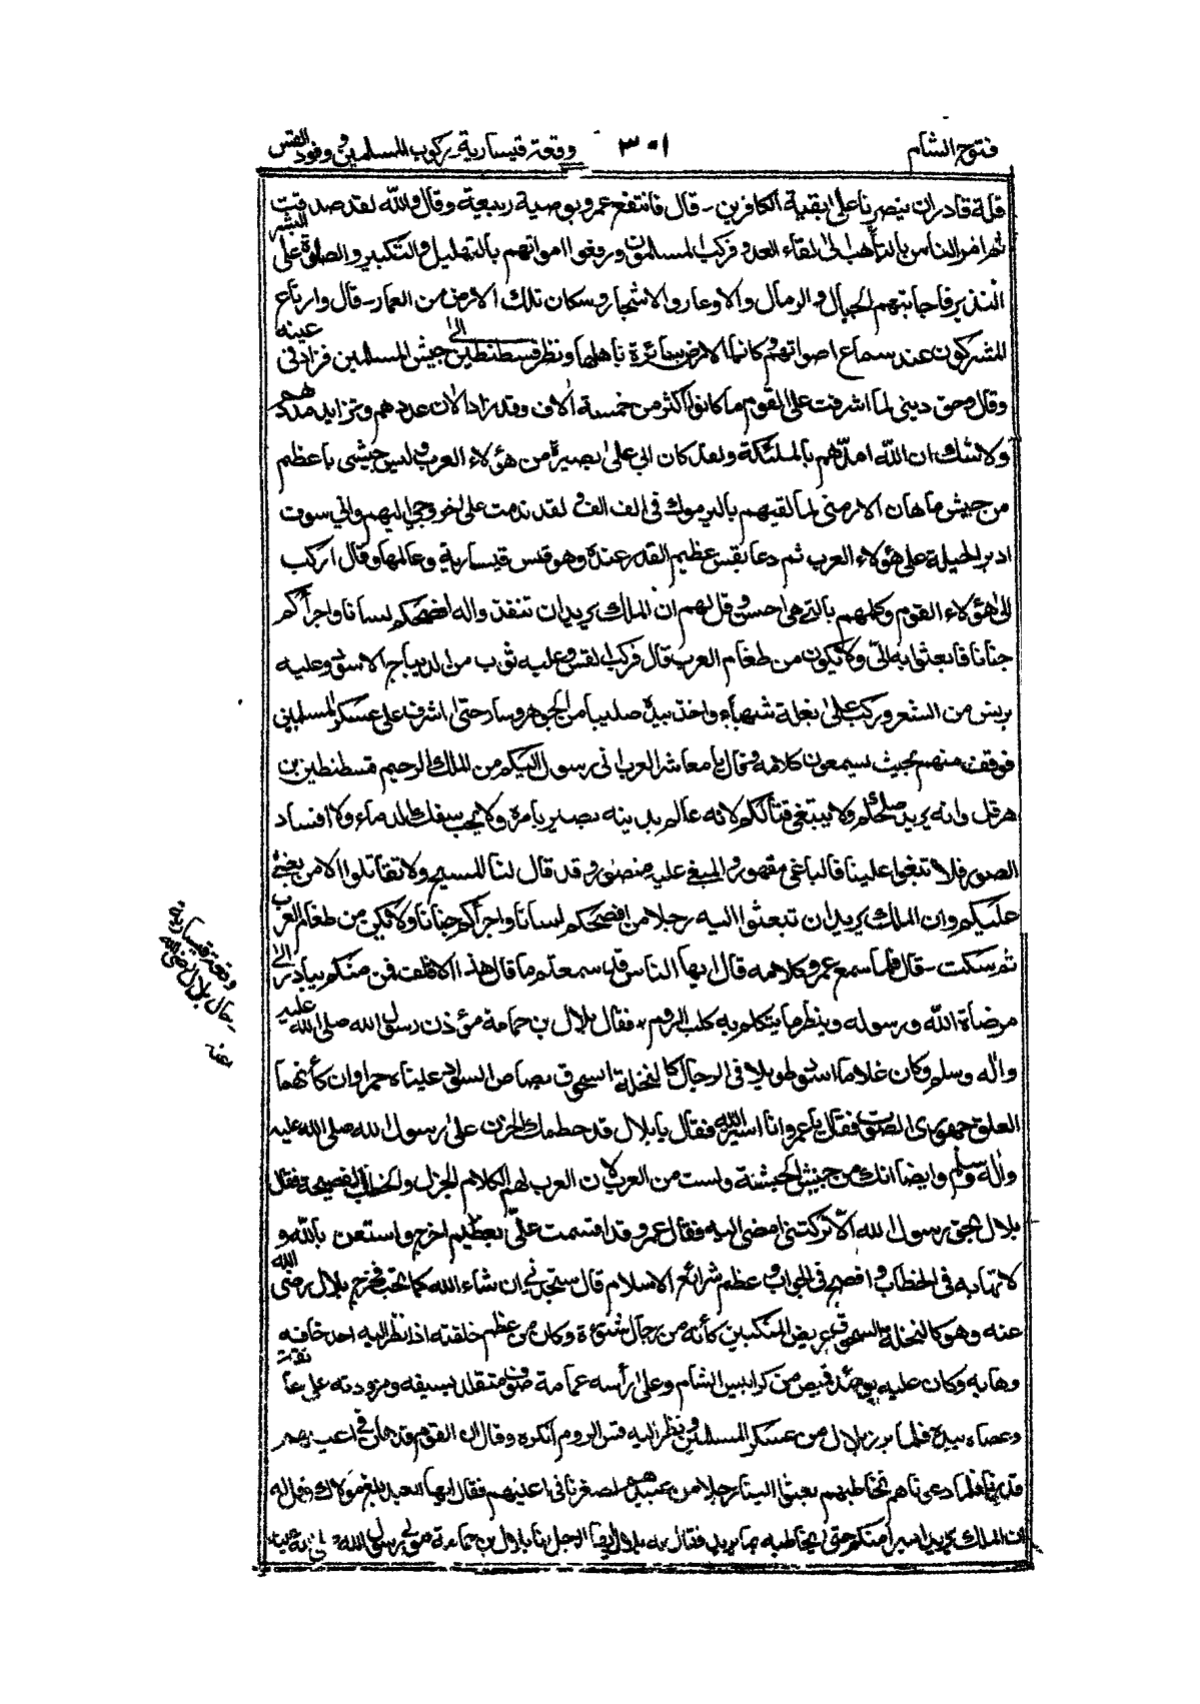 فتوح الشام ٣٠١ وقعة قيسارية بركوب المسلمين ووفود القس
قلة قادر ان ينصرنا على بقية الكافرين ـ قال فانتفع عمرو بوصية ربيعة وقال والله لقد صدقت
ثم امر الناس بالتأهب الى لقاء العدو فركب المسلمون ورفعوا اصواتهم بالتهليل والتكبير والصلوة على البشير
النذير فاجابتهم الجبال والرمال والاوعار والاشجار وسكان تلك الارض من العمار ـ قال وارتاع
المشركون عند سماع اصواتهم وكانما الارض سائرة باهلها ونظر قسطنطين الى جيش المسلمين فزاد في عينه
وقال وحق ديني لما اشرفت على القوم ما كانوا اكثر من خمسة الاف وقد زاد الان عددهم وتزايد مددهم
ولا شك ان الله امدهم بالملئكة ولقد كان ابي على بصيرة من هؤلاء العرب وليس جيشى باعظم
من جيش ماهان الارمنى لما لقيهم باليرموك فى الف الف ولقد ندمت على خروجي اليهم واني سوف
ادبر الحيلة على هؤلاء العرب ثم دعا بقس عظيم القدر عنده وهو قس قيسارية وعالمها وقال اركب
الى هؤلاء القوم وكلمهم بالتي هي احسن وقل لهم ان الملك يريد ان تنفذ واله افصحكم لسانا واجرأكم
جنانا فابعثوا به الىّ ولا تكون من طغام العرب قال فركب القس وعليه ثوب من الديباج الاسود وعليه
برنس من الشعر وركب على بغلة شهباء واخذ بيده صليبا من الجوهر وسار حتى اشرف على عسكر المسلمين
فوقف منهم بحيث يسمعون كلامه وقال يا معاشر العرب انى رسول اليكم من الملك الرحيم قسطنطين بن
هرقل وانه يريد صلحكم ولا يبتغى قتالكم لانه عالم بدينه بصير بامره ولا يحب سفك الدماء ولا افساد
الصور فلا تبغوا علينا فالباغى مقهور والمبغى عليه منصور وقد قال لنا المسيح ولا تقاتلوا الا من بغى
عليكم وان الملك يريد ان تبعثوا اليه رجلا من افصحكم لسانا واجرأكم جنانا ولا تكن من طغام العرب
ثم سكت ـ قال فلما سمع عمرو كلامه قال ايها الناس قد سمعتم ما قال هذا الاقلف فمن منكم يبادر الى
مرضاة الله ورسوله وينظر ما يتكلم به كلب الروم ، فقال بلال بن حمامة مؤذن رسول الله صلى الله عليه
واله وسلم وكان غلاما اسود طويلا فى الرجال كالنخلة السحوق بصاص السواد عيناه حمراوان كأنهما
العلق جهورى الصوت فقال يا عمرو انا اسير اليه فقال يا بلال قد حطمك الحزن على رسول الله صلى الله عليه
واله وسلم وايضا انك من جيش الحبشة ولست من العرب لان العرب لهم الكلام الجزل والخطاب الفصيحة فقال
بلال بحق رسول الله الا تركتنى امضى اليه فقال عمرو قد اقسمت علىّ بعظيم اخرج واستعن بالله و
لا تهابه فى الخطاب وافصح فى الجواب وعظم شرائع الاسلام قال ستجدني ان شاء الله كما تحب فخرج بلال رضى الله
عنه وهو كالنخلة السحوق عريض المنكبين كأنه من رجال شنوءة وكان من عظم خلقته اذا نظر اليه احد خافه
وهابه وكان عليه يومئذ قميص من كرابيس الشام وعلى رأسه عمامة صوف متقلد بسيفه ومزودته على عاتقه
وعصاه بيده فلما برز بلال من عسكر المسلمين ونظر اليه قس الروم انكره وقال ان القوم قد هان فى اعينهم
قدرنا فلما دعوناهم نخاطبهم بعثوا الينا رجلا من عبيدهم لصغرنا فى اعينهم فقال ايها العبد بلغ مولاك وقل له
ان الملك يريد اميرا منكم حتى يخاطبه بما يريد فقال له بلال ايها الرجل انا بلال بن حمامة مولى رسول الله
وقعة قيسارية
بلال رضى الله
عنه